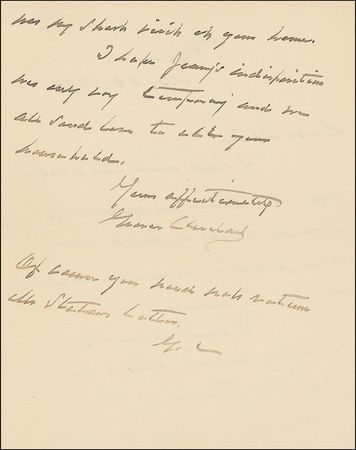 was my short visit at your home.
I hope Jenny's indisposition
was only very temporary and we
all send love to all your
household.
Yours affectionately
Grover Cleveland
Of course you need not return
Mr Statons letter.
G. C